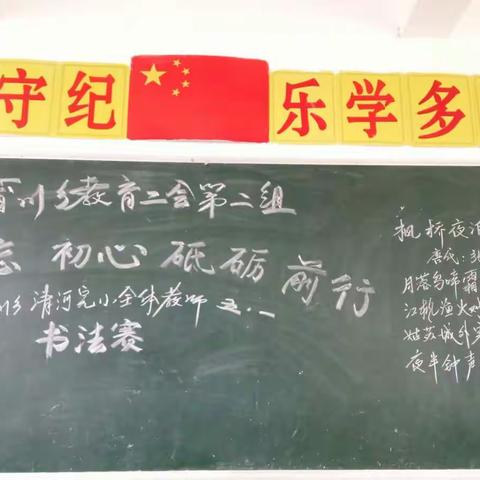 守纪 乐学多
川乡教育工会第二组
忘 初心 砥砺 前行
乡清河完小全体教师
书法赛
枫桥夜泊
唐代：张
月落乌啼霜
江枫渔火对
姑苏城外寒
夜半钟声